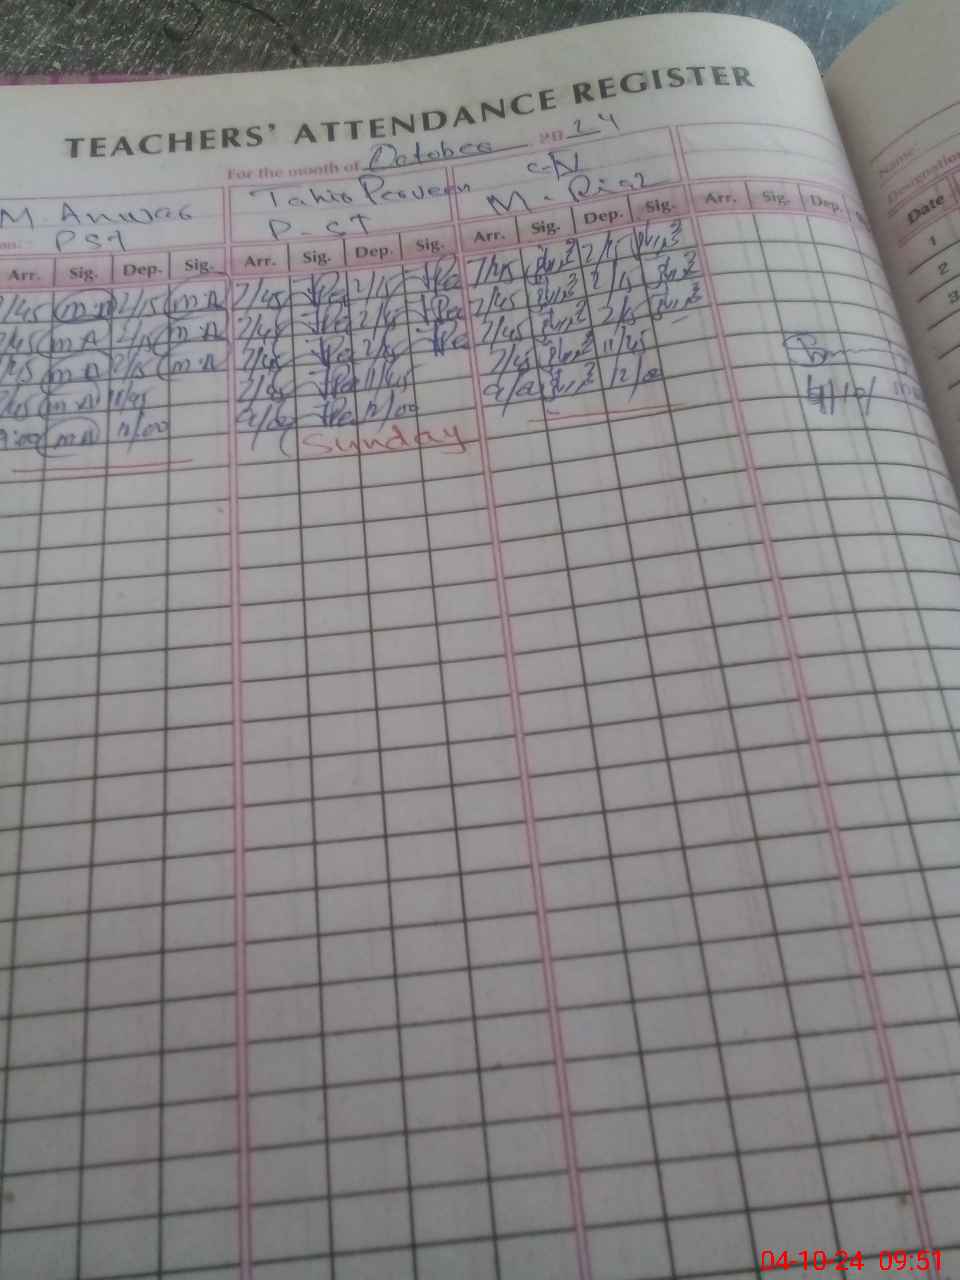 TEACHERS' ATTENDANCE REGISTER
For the month of October 2024
M. Anwar Tahir Parveen C-IV
PST P-ST M. Riaz
Name:
Designation
Arr. Sig. Dep. Sig. Arr. Sig. Dep. Sig. Arr. Sig. Dep. Sig. Arr. Sig. Dep. Date
7/45 MA 2/15 MA 7/45 2/15 7/45 2/15 1
7/45 MA 2/15 MA 7/45 2/15 7/45 2/15 2
7/45 MA 2/15 MA 7/45 2/15 7/45 2/15 3
7/45 MA 11/45 7/45 11/45 7/45 11/45
9:00 MA 12/00 9/00 12/00 9/00 12/00
Sunday
04-10-24 09:51